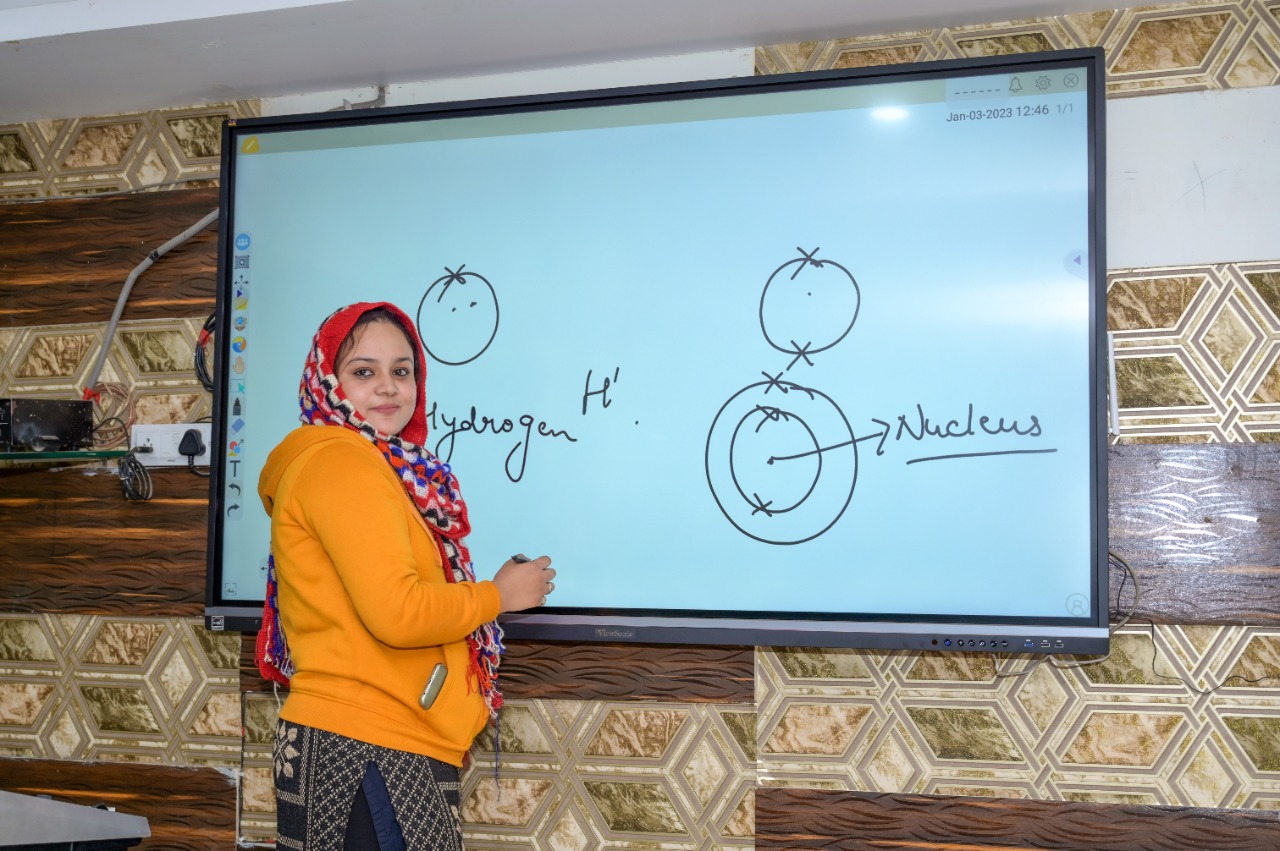 Jan-03-2023 12:46 1/1
Hydrogen H'
Nucleus
ViewSonic